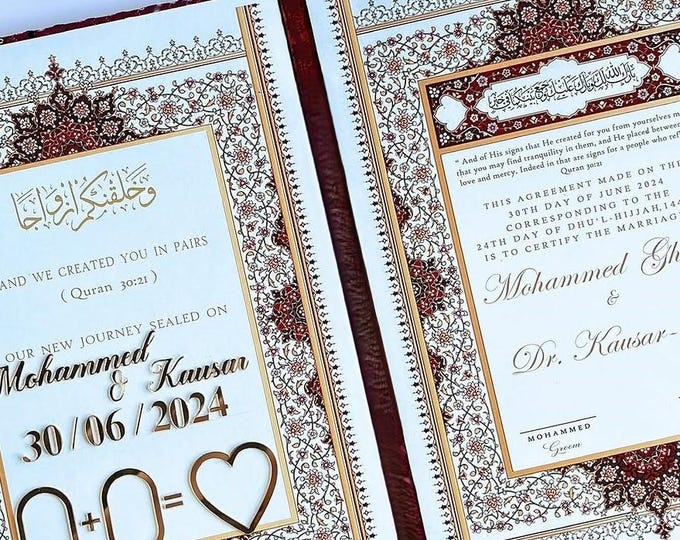 وَخَلَقْنَاكُمْ أَزْوَاجًا
AND WE CREATED YOU IN PAIRS
( Quran 30:21 )
OUR NEW JOURNEY SEALED ON
Mohammed
& Kausar
30/06/2024
+ =
بارك الله لك وبارك عليك وجمع بينكما في خير
" And of His signs that He created for you from yourselves
that you may find tranquility in them, and He placed between
love and mercy. Indeed in that are signs for a people who
Quran 30:21
THIS AGREEMENT MADE ON THE
30TH DAY OF JUNE 2024
CORRESPONDING TO THE
24TH DAY OF DHU'L-HIJJAH,
IS TO CERTIFY THE MARRIAGE
Mohammed
&
Dr. Kausar-
MOHAMMED
Groom